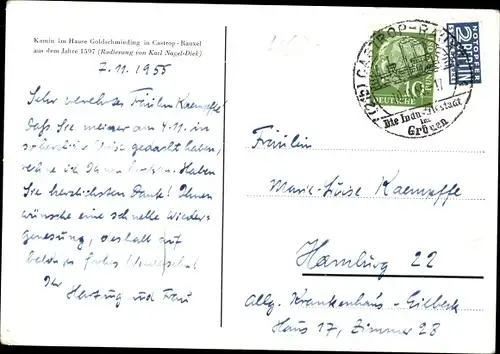 Kamin im Hause Goldschmieding in Castrop-Rauxel
aus dem Jahre 1597 (Radierung von Karl Nagel-Diek)
7.11.1955
Sehr verehrtes Fräulein Kaempffe!
Daß Sie meiner am 4.11. in
so herzlicher Weise gedacht haben,
Haben
Sie herzlichsten Dank! Ihnen
wünsche eine schnelle Wieder-
genesung, deshalb auf
baldiges frohes
Ihr
Herzog und Frau
(21b) CASTROP-RAUXEL
Die Industriestadt
im
Grünen
10
DEUTSCHE
NOTOPFER
2 BERLIN
STEUERMARKE
Fräulein
Marie-Luise Kaempffe
Hamburg 22
Allg. Krankenhaus - Eilbeck
Haus 17, Zimmer 28